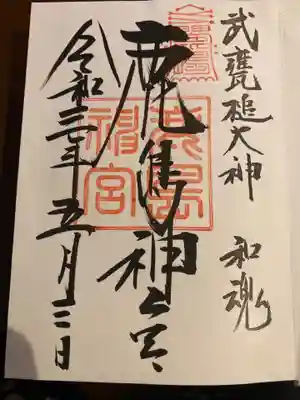 武甕槌大神 和魂
鹿島神宮
鹿島神宮
令和三年五月三日